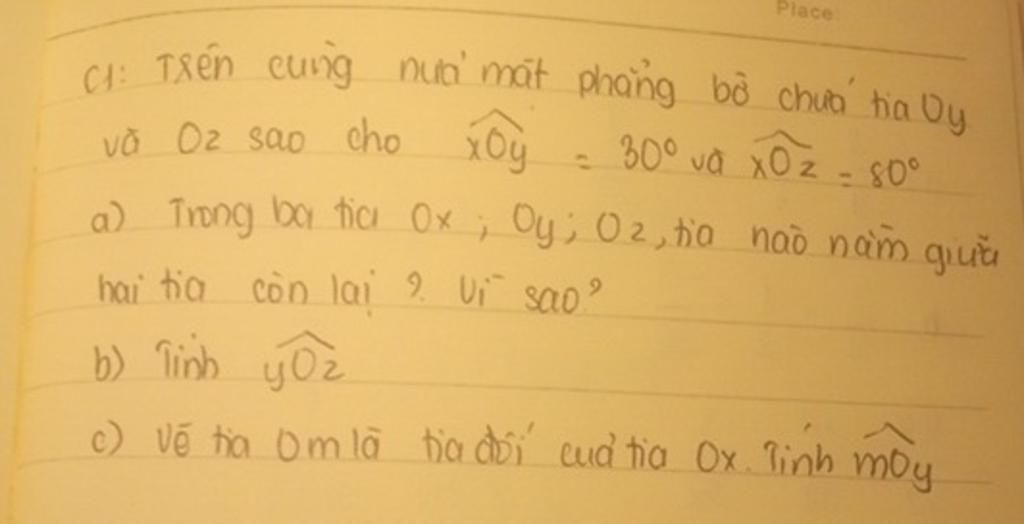 Place
C1: Trên cùng nửa mặt phẳng bờ chứa tia Oy
và Oz sao cho xOy = 30° và xOz = 80°
a) Trong ba tia Ox ; Oy ; Oz, tia nào nằm giữa
hai tia còn lại ? Vì sao?
b) Tính yOz
c) Vẽ tia Om là tia đối của tia Ox. Tính mOy